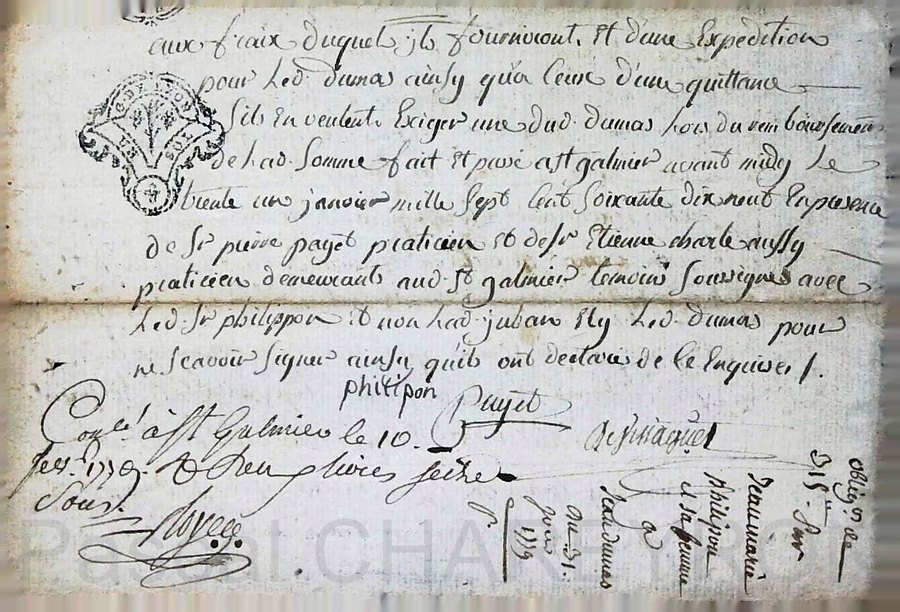 aux fraix duquel ils fourniront, Et d'une Expedition
pour led. dumas ainsy qu'a Ceux d'une quittance
Sils En veulent Exiger une dud. dumas hors du remboursement
de lad. Somme fait et passé a st galmier avant midy Le
trente un janvier mille Sept Cent Soixante dix neuf En presence
de Sr pierre payet praticien et de Sr Etienne charle aussy
praticien demeurants aud. St galmier temoins Soussignés avec
Led. Sr philippon et non lad. juban Ny Led. dumas pour
ne Scavoir Signer ainsy qu'ils ont declaré de ce Enquis et /.
philipon
Payet
Conlé. à St Galmier le 10.
fevr. 1779. R deux livres seize
Sous.
oblig.on de
315 ll. Par
Jean marie
philipon
et sa femme
a
Jean dumas
Du 31.
janv.
1779
Pascal CHAREYRON